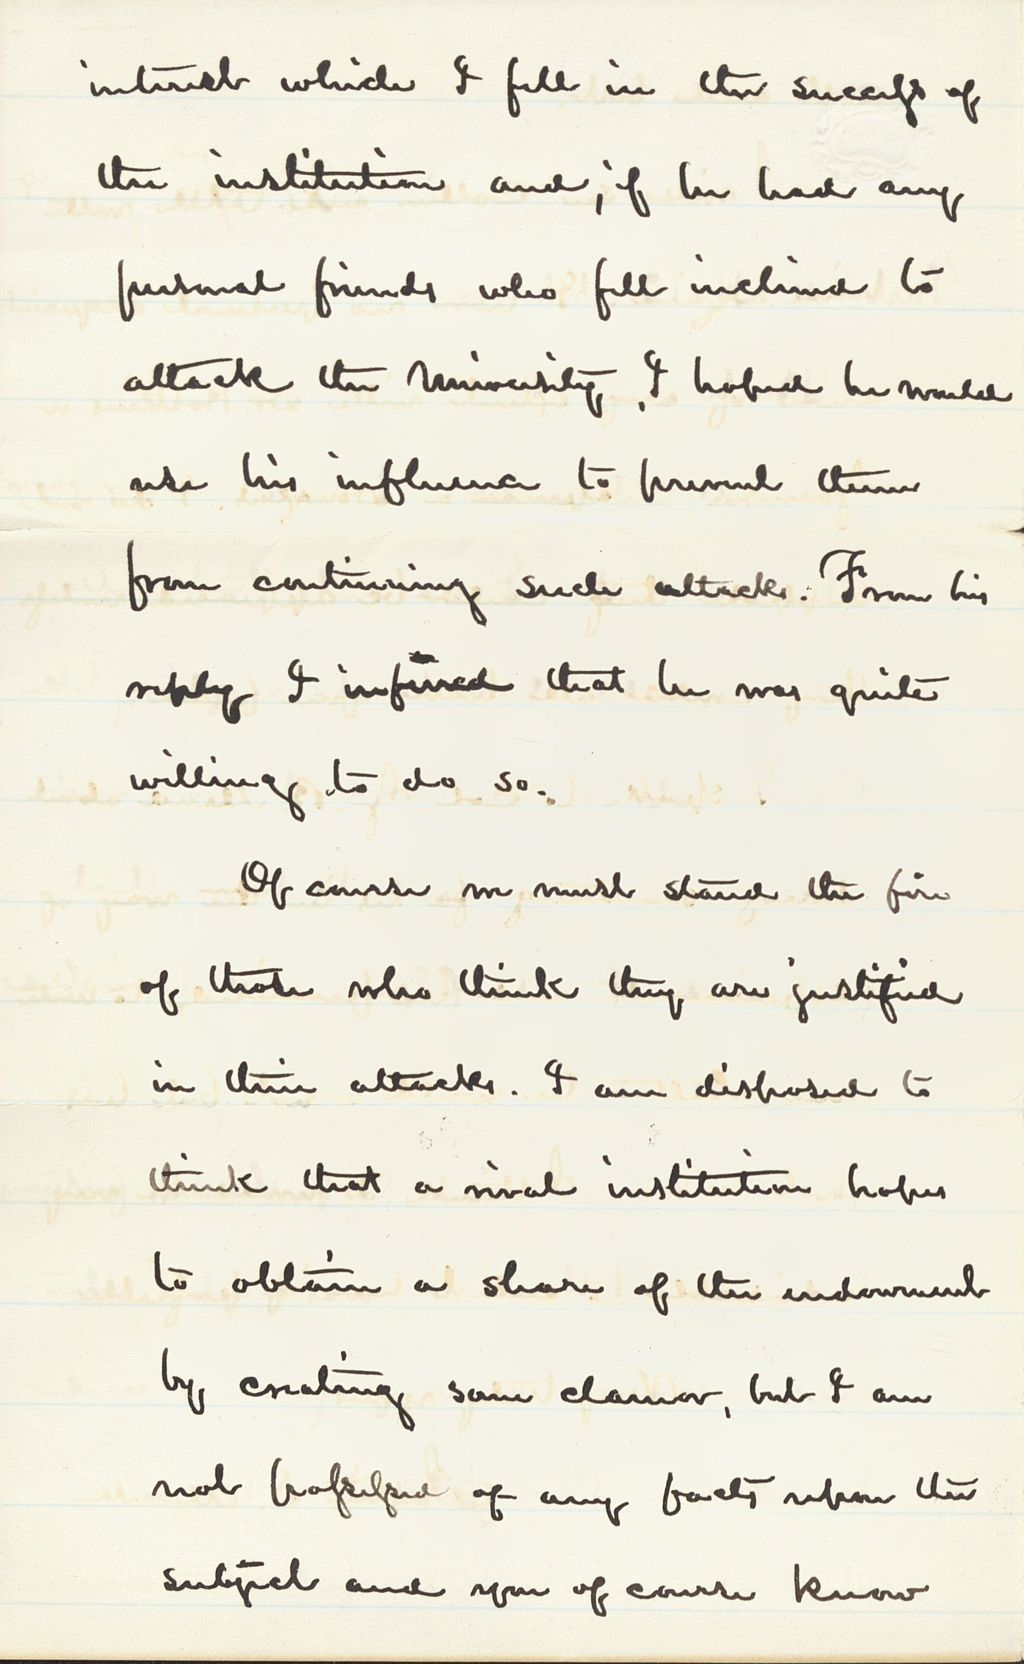 interest which I felt in the success of
the institution and, if he had any
personal friends who felt inclined to
attack the University, I hoped he would
use his influence to prevent them
from continuing such attacks. From his
reply I inferred that he was quite
willing to do so.
Of course we must stand the fire
of those who think they are justified
in their attacks. I am disposed to
think that a rival institution hopes
to obtain a share of the endowment
by creating some clamor, but I am
not possessed of any facts upon the
subject and you of course know